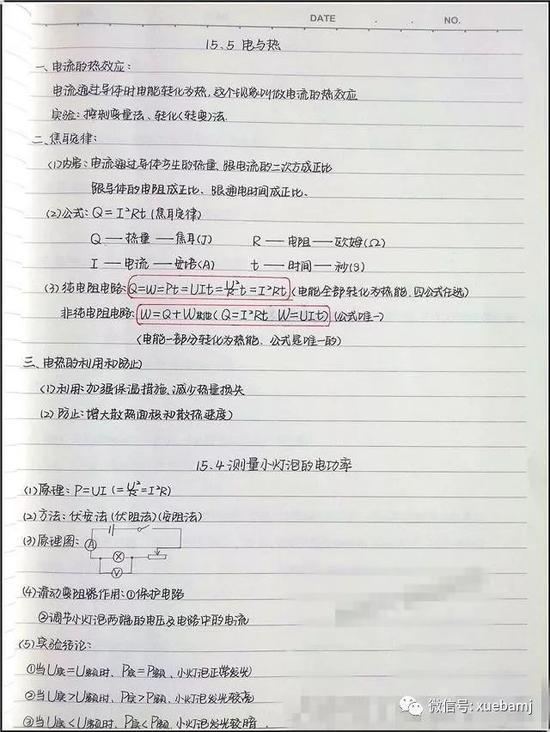 DATE NO.
15.5 电与热
一、电流的热效应:
电流通过导体时电能转化为热,这个现象叫做电流的热效应
实验:控制变量法、转化(转换)法.
二、焦耳定律:
(1)内容:电流通过导体产生的热量、跟电流的二次方成正比
跟导体的电阻成正比、跟通电时间成正比、
(2)公式:Q=I²Rt(焦耳定律)
Q — 热量 — 焦耳(J) R — 电阻 — 欧姆(Ω)
I — 电流 — 安培(A) t — 时间 — 秒(s)
(3)纯电阻电路:Q=W=Pt=UIt=U²/R t=I²Rt(电能全部转化为热能,四公式任选)
非纯电阻电路:W=Q+W其他(Q=I²Rt W=UIt)(公式唯一)
(电能一部分转化为热能、公式是唯一的)
三、电热的利用和防止
(1)利用:加强保温措施、减少热量损失
(2)防止:增大散热面积和散热速度)
15.4 测量小灯泡的电功率
(1)原理:P=UI(=U²/R=I²R)
(2)方法:伏安法(伏阻法)(安阻法)
(3)原理图:
A
V
(4)滑动变阻器作用:①保护电路
②调节小灯泡两端的电压及电路中的电流
(5)实验结论:
①当U实=U额时、P实=P额、小灯泡正常发光
②当U实>U额时、P实>P额、小灯泡发光较亮
③当U实<U额时、P实<P额、小灯泡发光较暗.
微信号: xuebamj